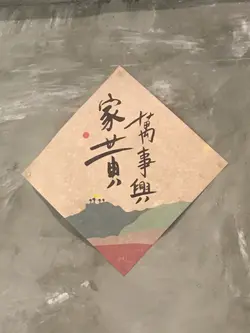 家黃
萬事興